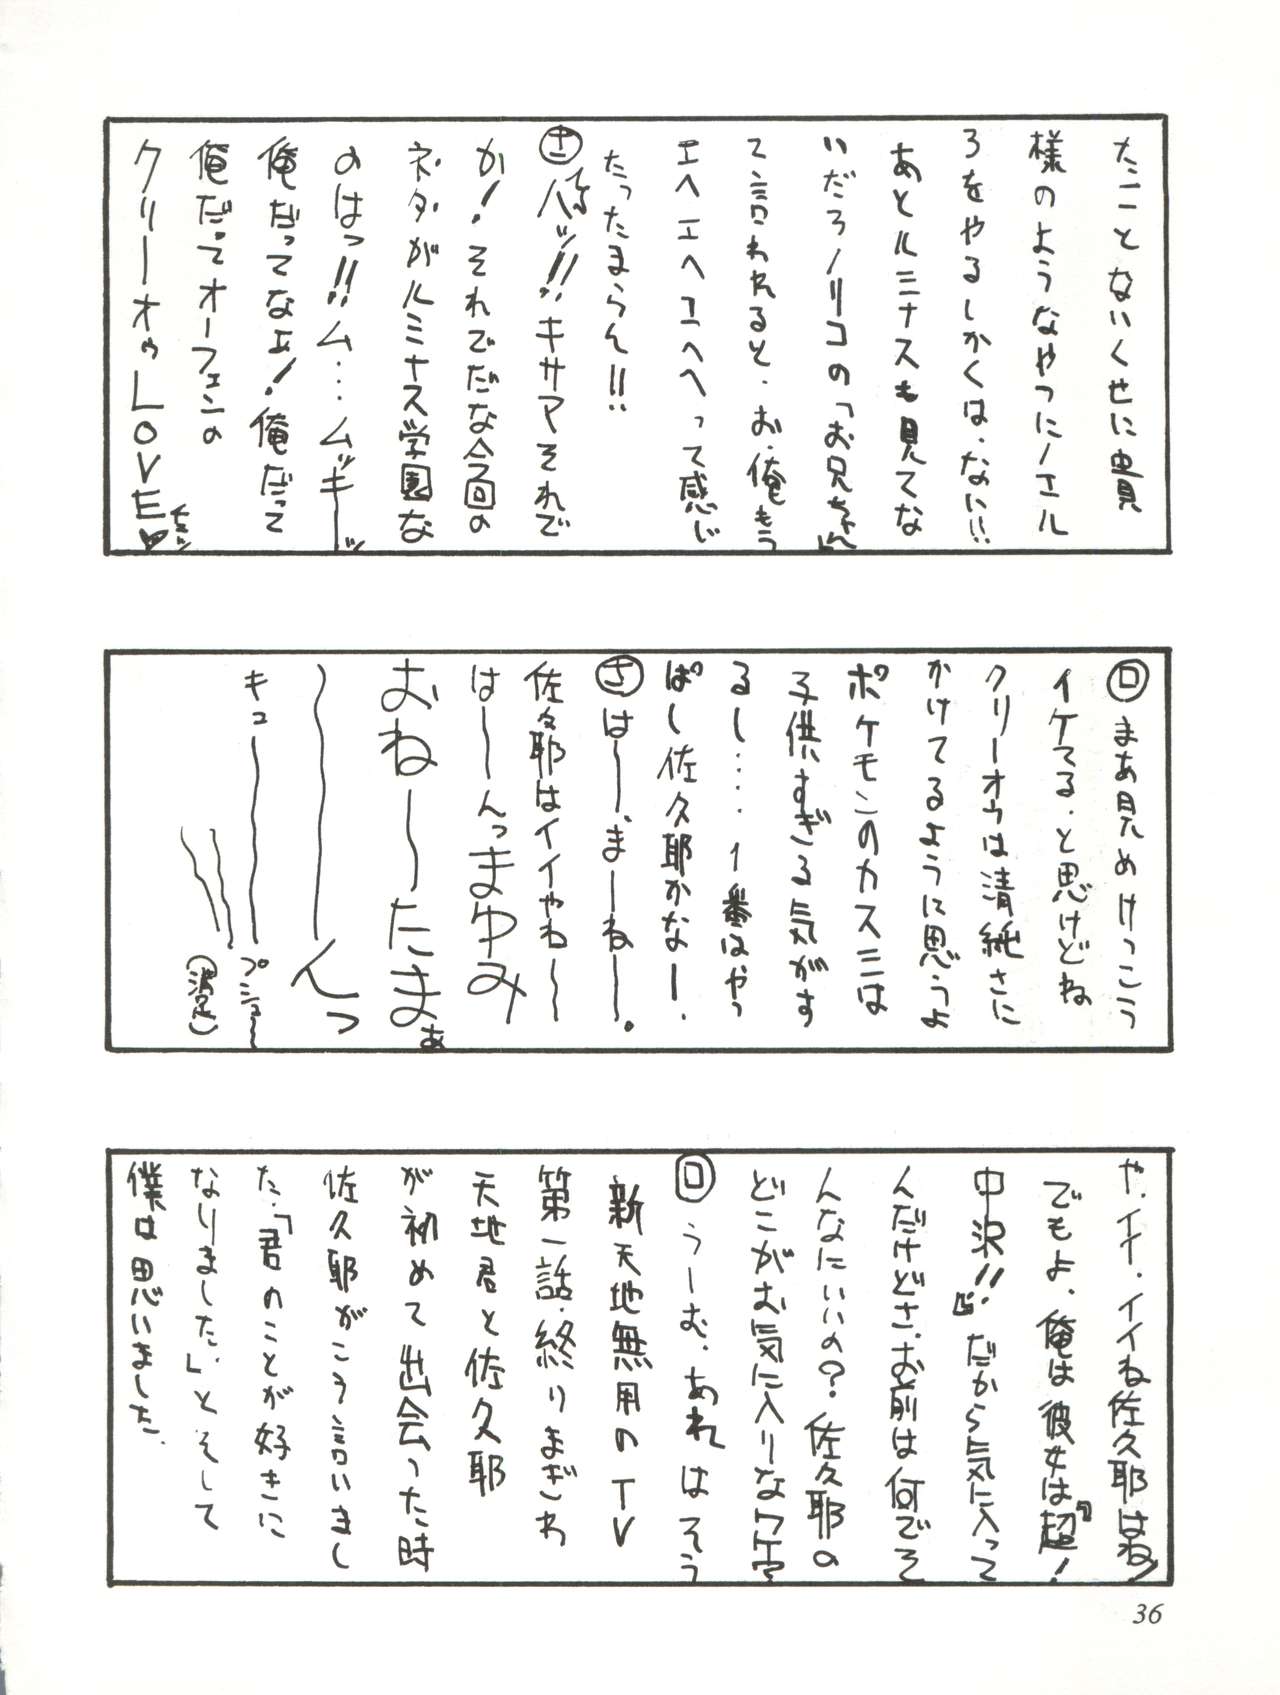 たことないくせに貴
様のようなやつにノエル
ろをやるしかくは、ない!!
あとルミナスも見てな
いだろノリコの「お兄ちゃん」
て言われると、お、俺もう
エヘエヘエヘヘって感じ
たったまらん!!
八ッ!!キサマそれで
か!それでだな今回の
ネタがルミナス学園な
のはっ!!ム…ムッキーッ
俺だってなェ!俺だって
俺だってオーフェンの
クリーオゥLOVE♥
ロ まあ見めけっこう
イケてる、と思けどね
クリーオウは清純さに
かけてるように思うよ
ポケモンのカスミは
子供すぎる気がす
るし…、1番はやっ
ぱし佐久耶かなー、
さ は〜、まーねー。
佐久耶はイイやね〜
は〜んっまゆみ
おね〜たまぁ
〜んっ
キュー
プシュ〜
(満足)
や、イイ、イイね佐久耶はね!
でもよ、俺は彼女は『超!
中沢!!』だから気に入って
んだけどさ、お前は何でそ
んなにいいの?佐久耶の
どこがお気に入りなワケ?
ロ うーむ、あれはそう
新天地無用のTV
第一話、終りまぎわ
天地君と佐久耶
が初めて出会った時
佐久耶がこう言いまし
た、「君のことが好きに
なりました、」とそして
僕は思いました、
36